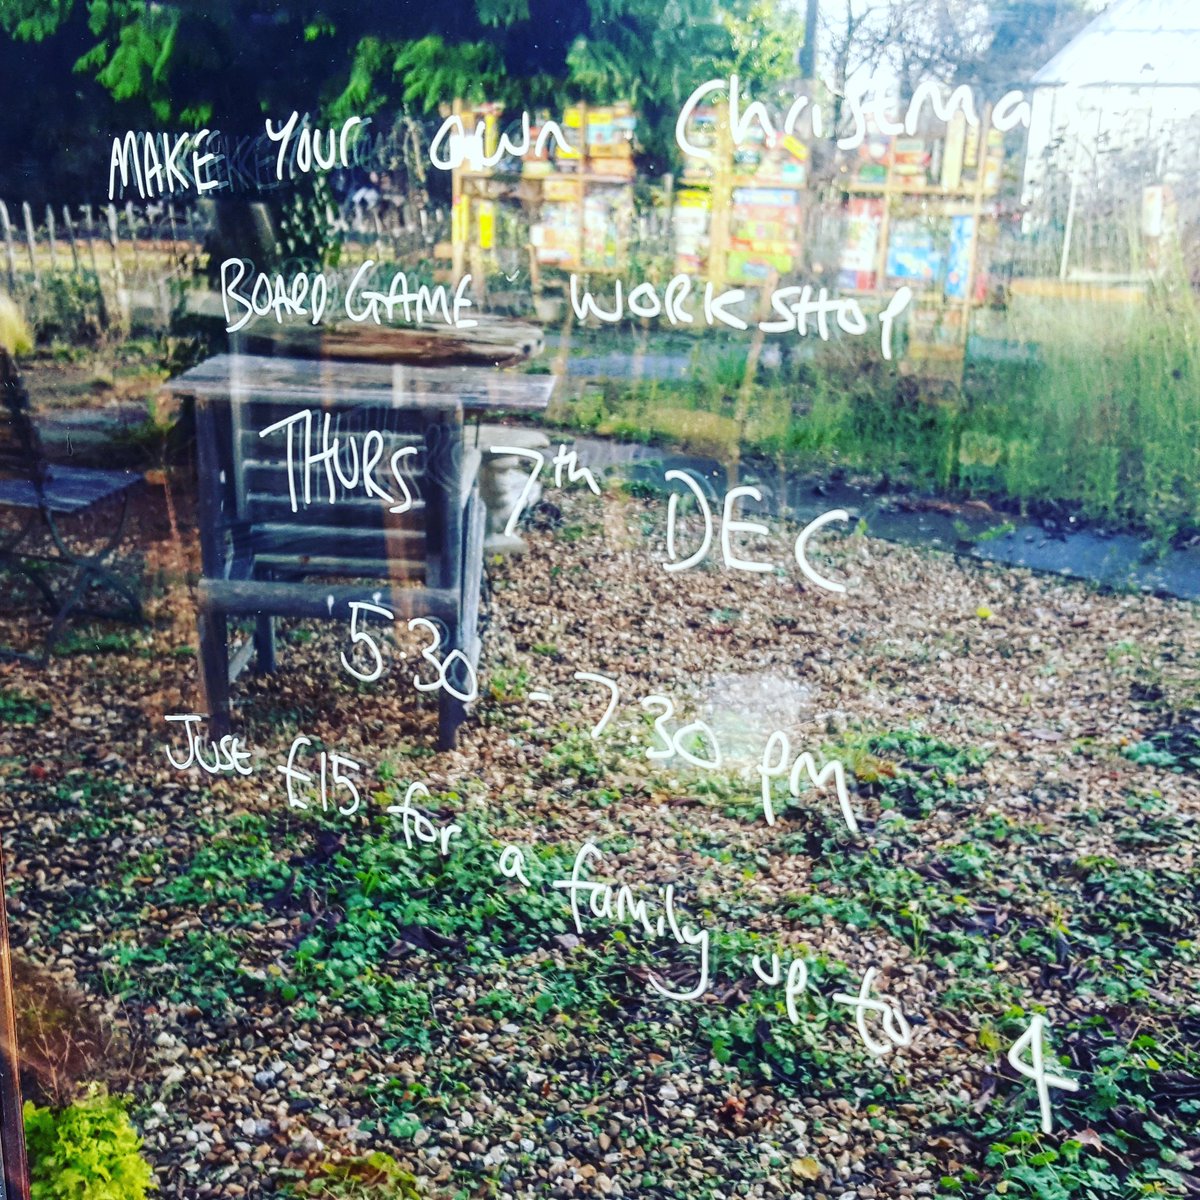 MAKE YOUR OWN Christma
BOARD GAME WORKSHOP
THURS 7th DEC
5.30 - 7.30 PM
JUST £15 for a family up to 4